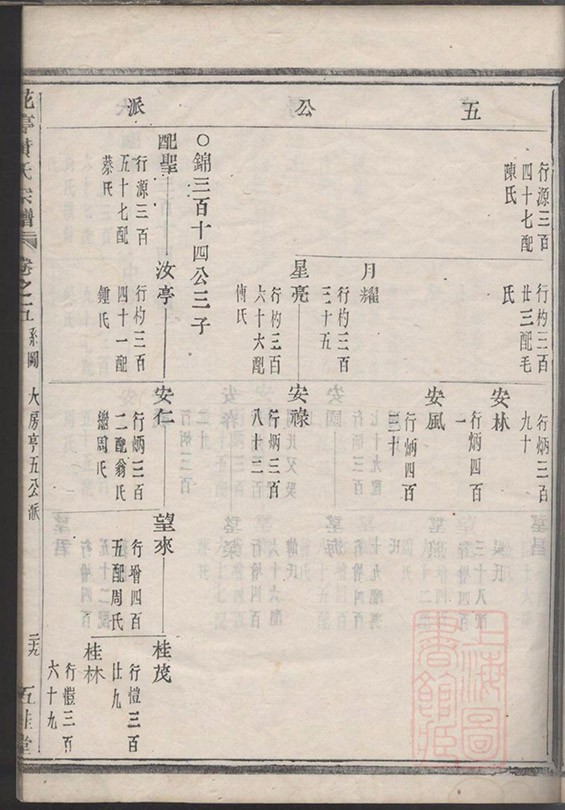 五公派
行源三百
四十七配
陳氏
○錦三百十四公三子
配聖
行源三百
五十七配
蔡氏
行杓三百
廿三配毛
氏
月耀
行杓三百
三十五
星亮
行杓三百
六十六配
傅氏
汝亭
行杓三百
四十一配
鍾氏
行炳三百
九十
安林
行炳四百
一
安風
行炳四百
三十
安祿
行炳三百
八十二
安仁
行炳三百
二配翁氏
繼周氏
望來
行增四百
五配周氏
桂茂
行愷三百
廿九
桂林
行愷三百
六十九
氏宗譜
卷之五
系圖
大房亭五公派
二十九
五桂堂
上海圖書館藏